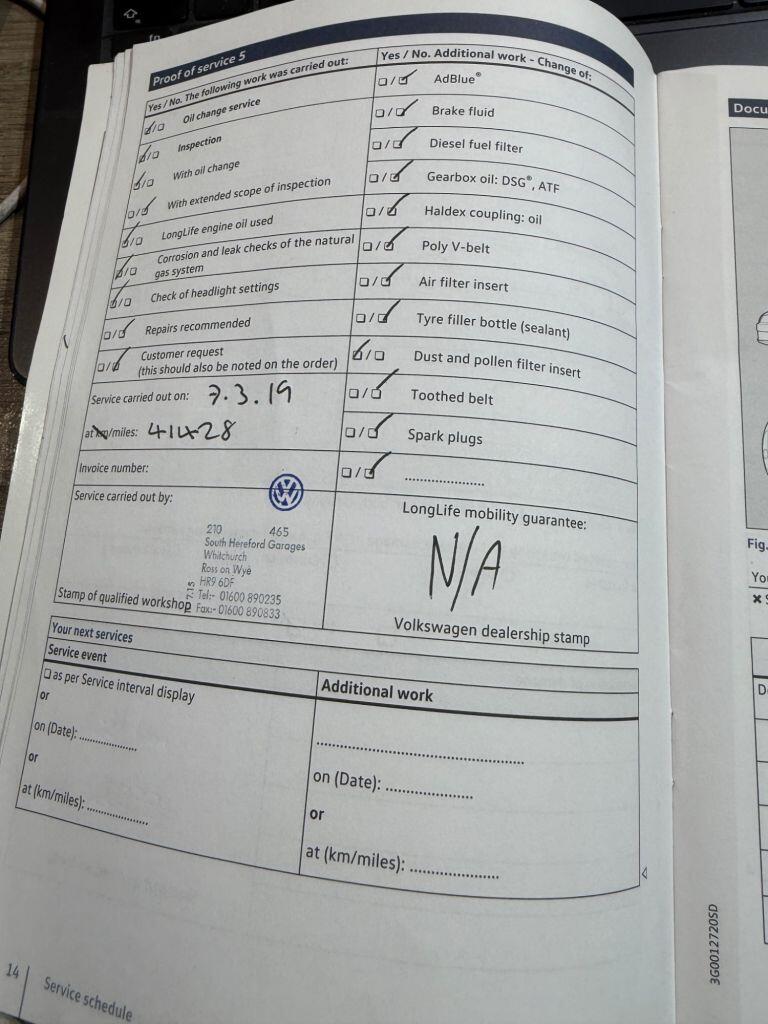 Proof of service 5
Yes / No. The following work was carried out:
Oil change service
Inspection
With oil change
With extended scope of inspection
LongLife engine oil used
Corrosion and leak checks of the natural
gas system
Check of headlight settings
Repairs recommended
Customer request
(this should also be noted on the order)
Service carried out on: 7.3.19
at km/miles: 41428
Invoice number:
Service carried out by:
210 465
South Hereford Garages
Whitchurch
Ross on Wye
HR9 6DF
Tel:- 01600 890235
Fax:- 01600 890833
Stamp of qualified workshop
Yes / No. Additional work - Change of:
AdBlue®
Brake fluid
Diesel fuel filter
Gearbox oil: DSG®, ATF
Haldex coupling: oil
Poly V-belt
Air filter insert
Tyre filler bottle (sealant)
Dust and pollen filter insert
Toothed belt
Spark plugs
....................
LongLife mobility guarantee:
N/A
Volkswagen dealership stamp
Your next services
Service event
as per Service interval display
or
on (Date): ....................
or
at (km/miles): ....................
Additional work
..................................................
on (Date): ....................
or
at (km/miles): ....................
14 Service schedule
3G0012720SD
Docu
Fig.
You